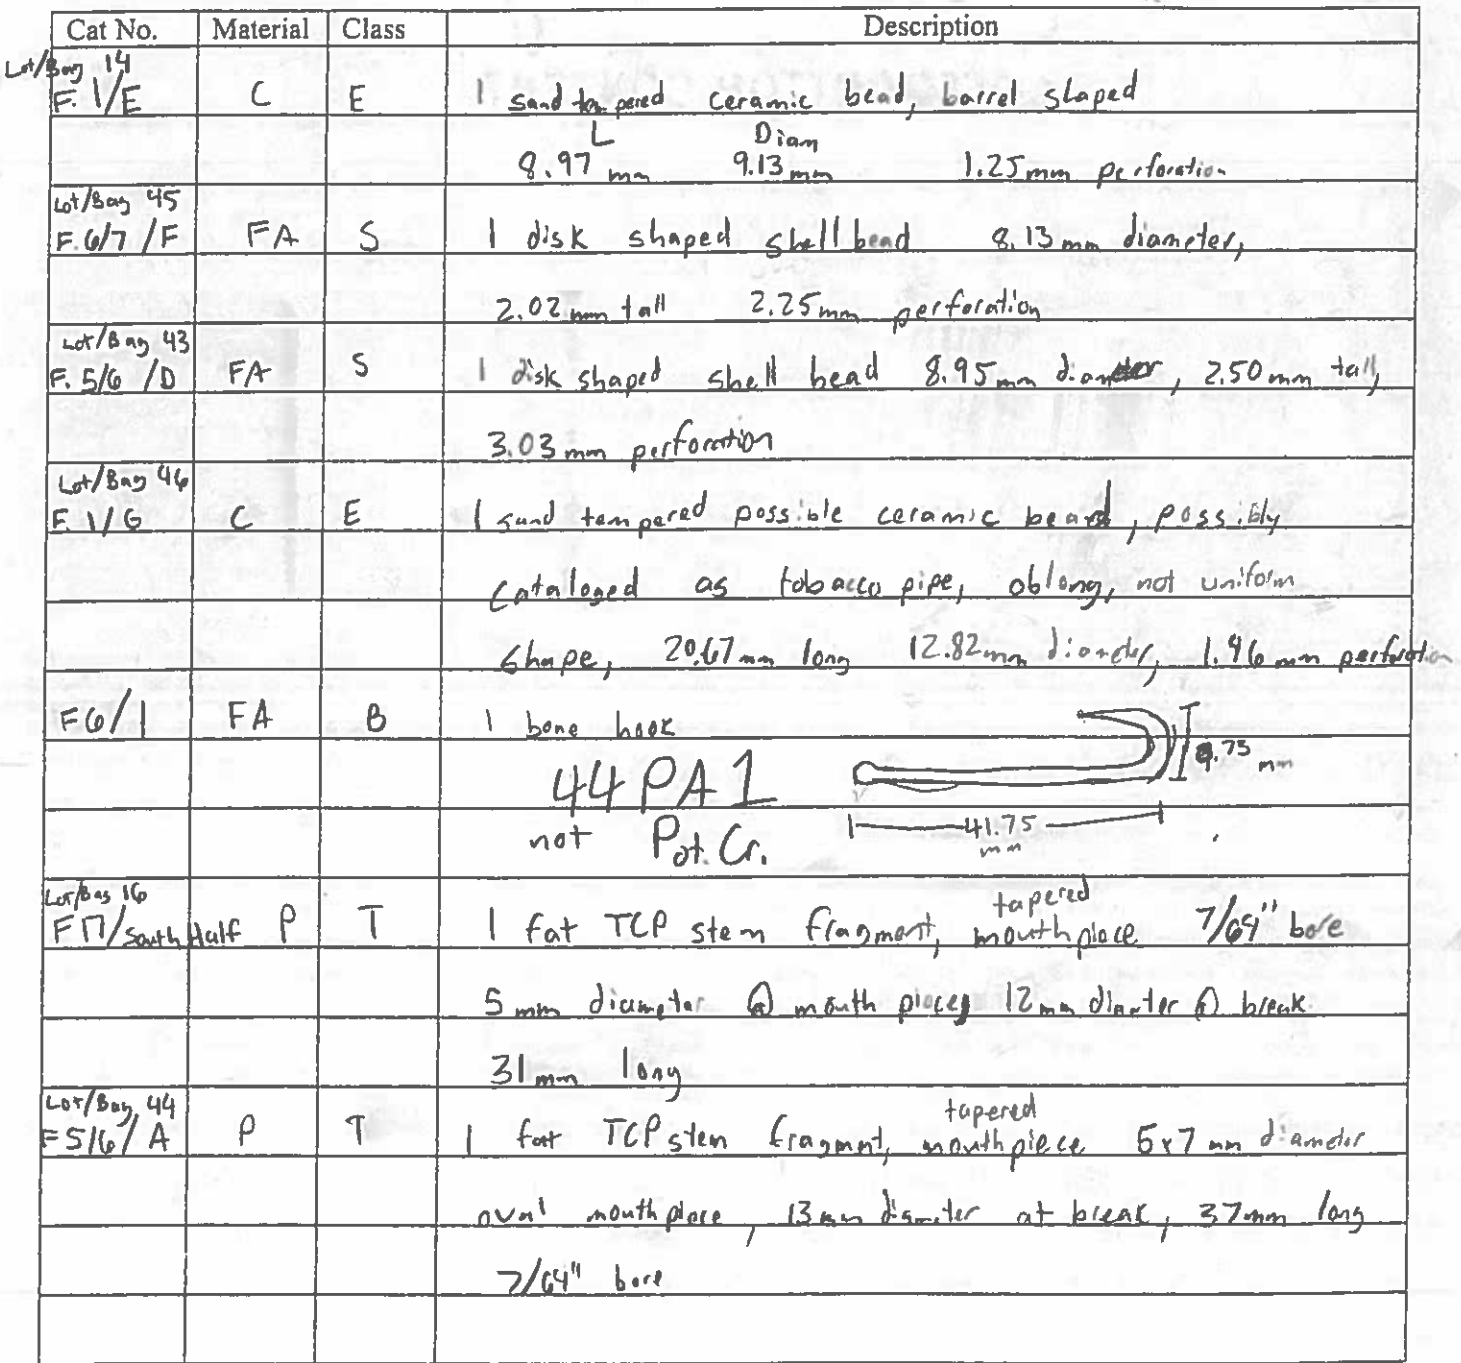 Cat No. Material Class Description
Lot/Bag 14
F. 1/E C E 1 sand tempered ceramic bead, barrel shaped
L Diam
8.97 mm 9.13 mm 1.25 mm perforation
Lot/Bag 45
F. 6/7 /F FA S 1 disk shaped shell bead 8.13 mm diameter,
2.02 mm tall 2.25 mm perforation
Lot/Bag 43
F. 5/6 /D FA S 1 disk shaped shell bead 8.95 mm diameter, 2.50 mm tall,
3.03 mm perforation
Lot/Bag 46
F. 1/G C E 1 sand tempered possible ceramic bead, possibly
Cataloged as tobacco pipe, oblong, not uniform
shape, 20.67 mm long 12.82 mm diameter, 1.96 mm perforation
F6/1 FA B 1 bone hook
.73 mm
44PA1
41.75 mm
not Pot. Cr.
Lot/Bag 16
F17/South Half P T 1 fat TCP stem fragment, tapered mouthpiece 7/64" bore
5 mm diameter @ mouth piece 12 mm diamter @ break
31 mm long
Lot/Bag 44
F5/6/A P T 1 fat TCP stem fragment, tapered mouthpiece 5x7 mm diameter
oval mouthpiece, 13 mm diameter at break, 37mm long
7/64" bore